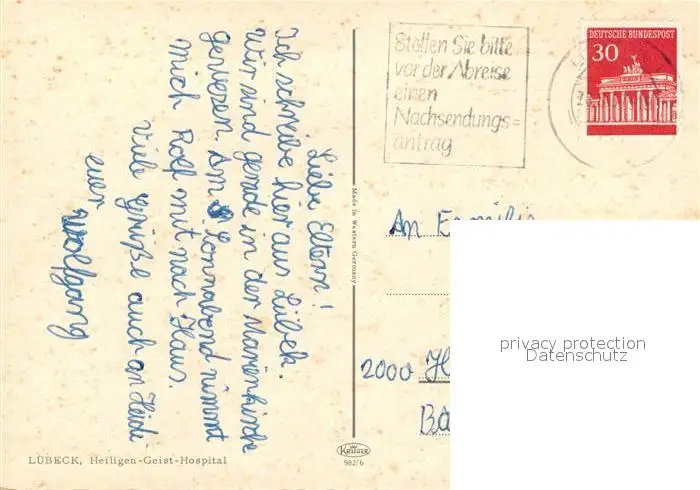 Liebe Eltern!
Ich schreibe hier aus Lübeck.
Wir sind gerade in der Marienkirche
gewesen. Am Sonnabend nimmt
mich Rolf mit nach Haus.
Viele Grüße auch an Heidi
euer
Wolfgang
LÜBECK, Heiligen-Geist-Hospital
Made in Western Germany
KRÜGER
982/6
Stellen Sie bitte
vor der Abreise
einen
Nachsendungs=
antrag
DEUTSCHE BUNDESPOST
30
An Familie
2000 H
privacy protection
Datenschutz